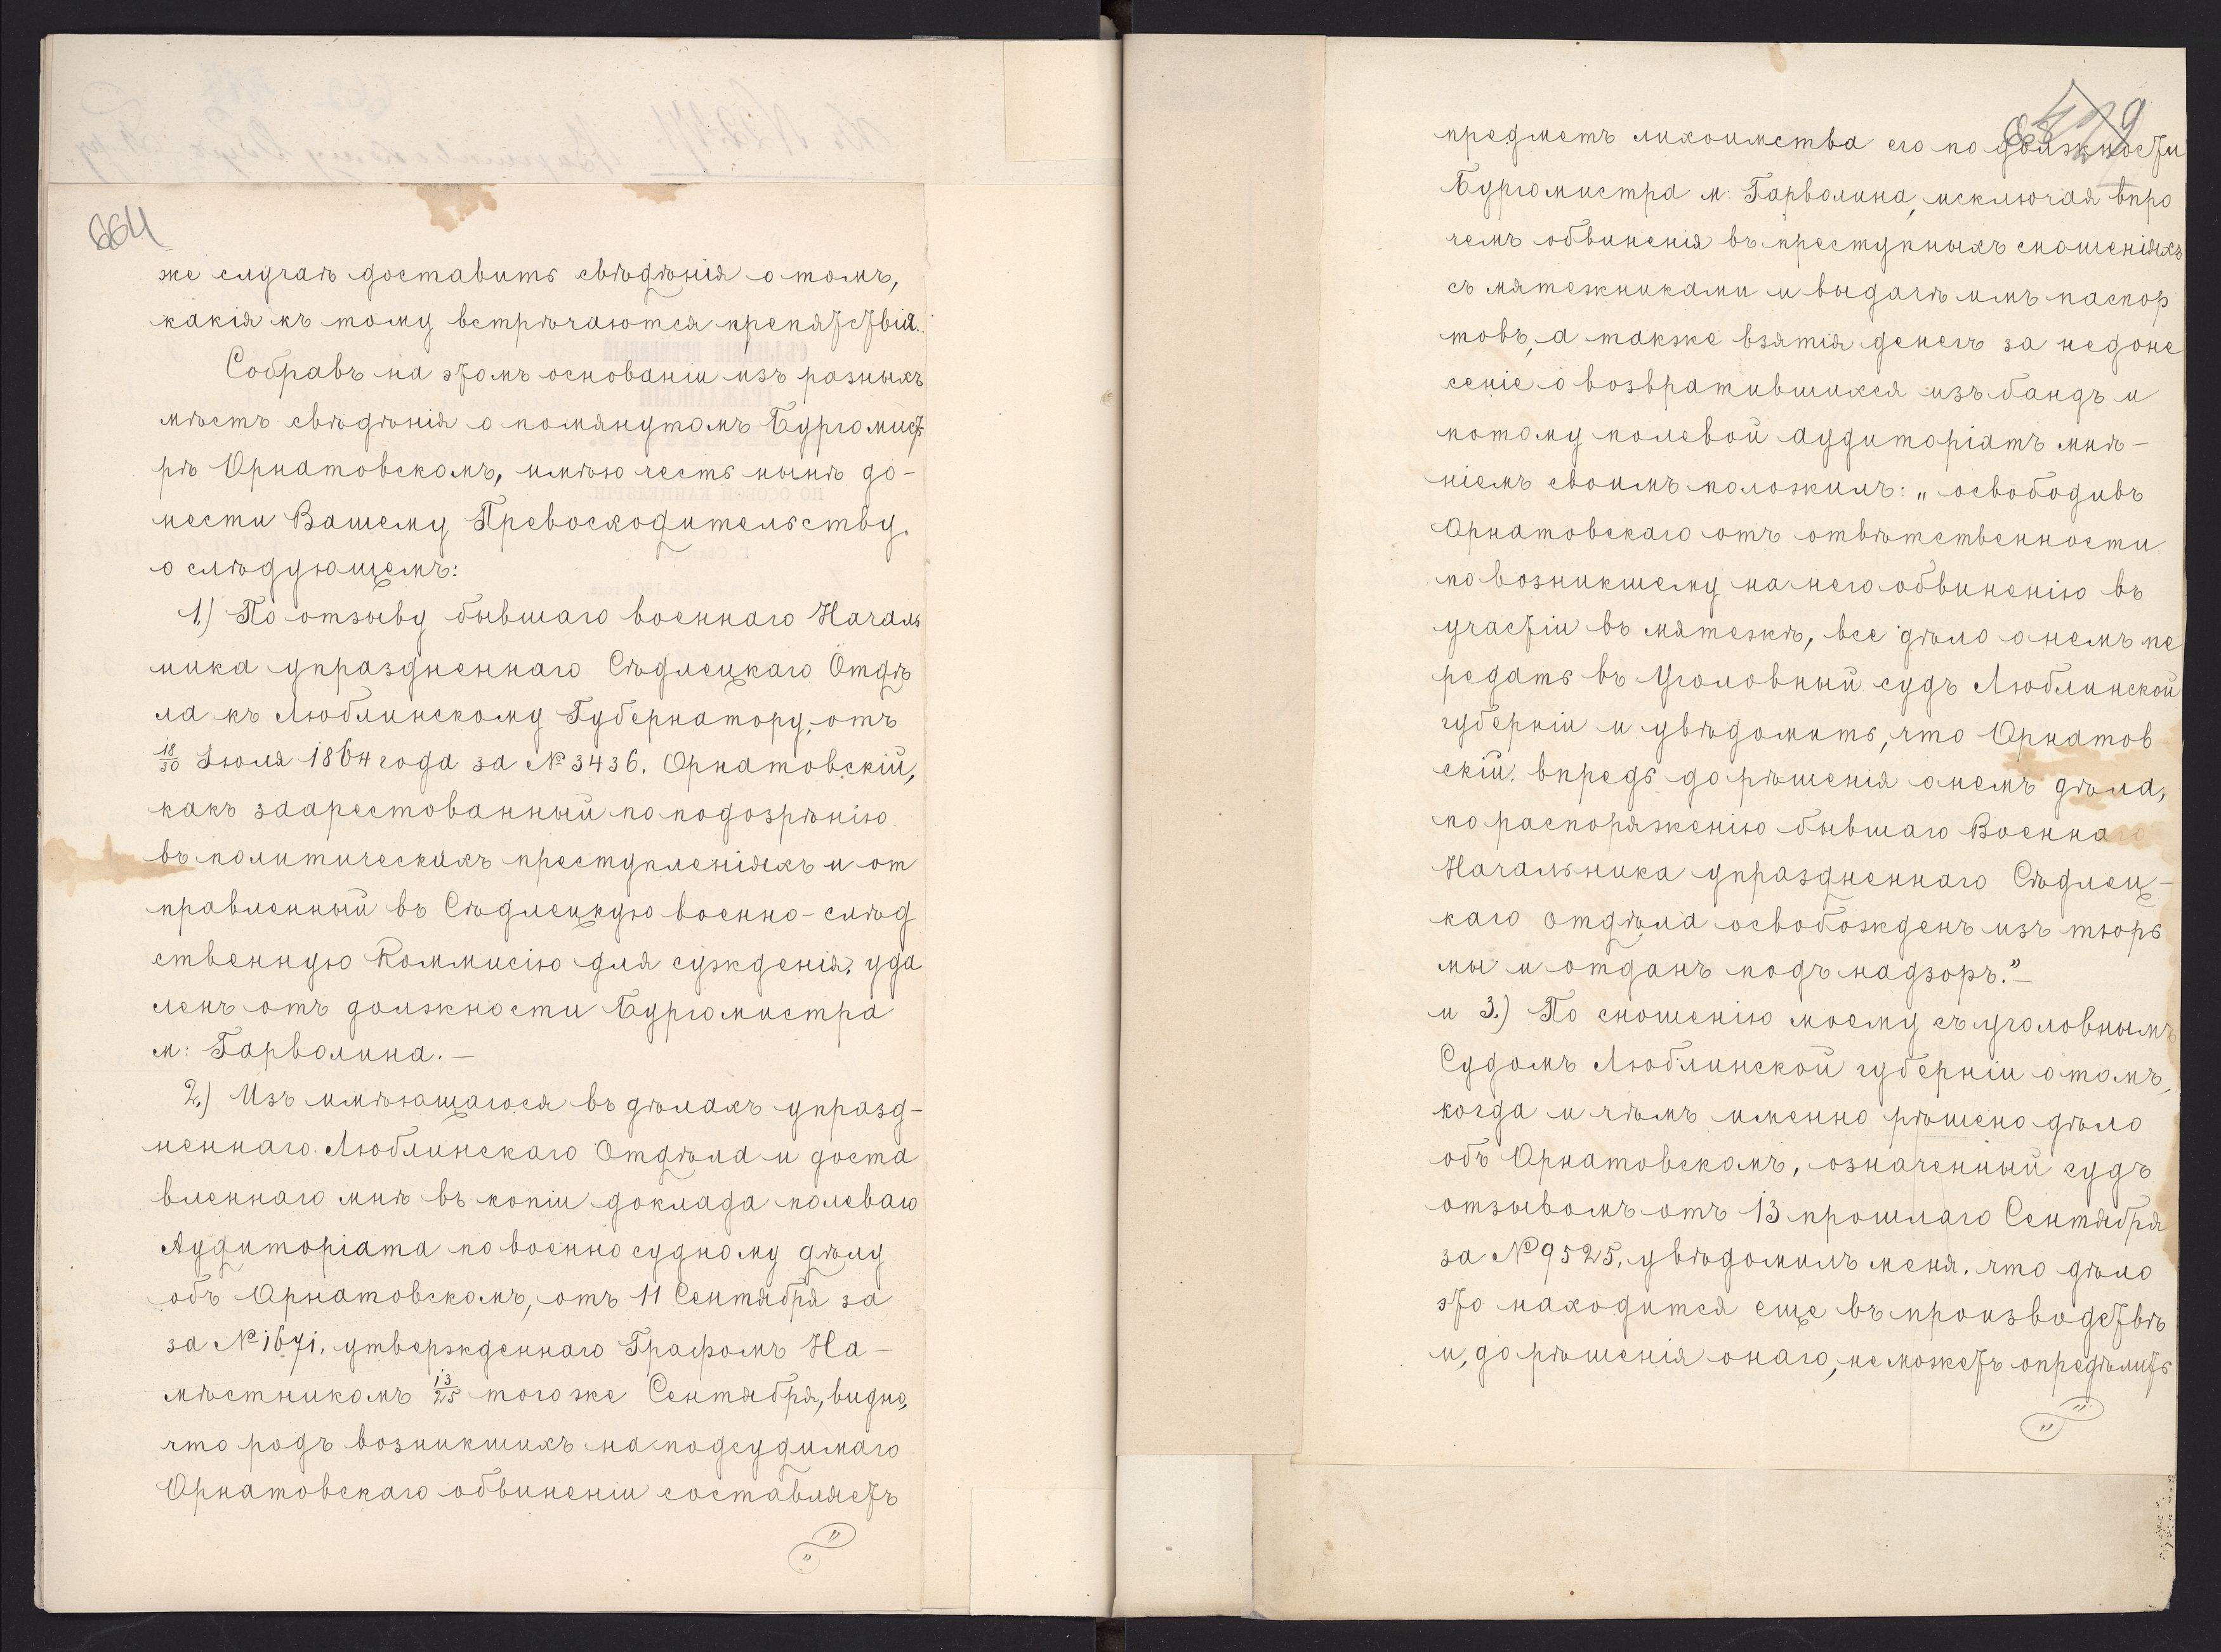 664
же случаѣ доставить свѣдѣнія о томъ,
какія къ тому встрѣчаются препятствія.
Собравъ на этомъ основаніи изъ разныхъ
мѣстъ свѣдѣнія о помянутомъ Бургомист
рѣ Орнатовскомъ, имѣю честь нынѣ до-
нести Вашему Превосходительству
о слѣдующемъ:
1.) По отзыву бывшаго военнаго Началь
ника упраздненнаго Сѣдлецкаго Отдѣ
ла къ Люблинскому Губернатору, отъ
18/30 Іюля 1864 года за № 3436, Орнатовскій,
какъ заарестованный по подозрѣнію
въ политическихъ преступленіяхъ и от
правленный въ Сѣдлецкую военно-слѣд
ственную Коммисію для сужденія, уда
ленъ отъ должности Бургомистра
м: Гарволина.—
2.) Изъ имѣющагося въ дѣлахъ упразд-
неннаго Люблинскаго Отдѣла и доста
вленнаго мнѣ въ копіи доклада полеваго
Аудиторіата по военно судному дѣлу
объ Орнатовскомъ, отъ 11 Сентября за
за № 1671, утвержденнаго Графомъ На-
мѣстникомъ 13/25 того же Сентября, видно,
что родъ возникшихъ на подсудимаго
Орнатовскаго обвиненіи составляетъ
предметъ лихоимства его по должности
Бургомистра м: Гарволина, исключая впро
чемъ обвиненія въ преступныхъ сношеніяхъ
съ мятежниками и выдачѣ имъ паспор
товъ, а также взятія денегъ за недоне
сеніе о возвратившихся изъ бандъ и
потому полевой аудиторіатъ мнѣ-
ніемъ своимъ положилъ: „освободивъ
Орнатовскаго отъ отвѣтственности
по возникшему на него обвиненію въ
участіи въ мятежѣ, все дѣло о немъ пе
редать въ Уголовный судъ Люблинской
губерніи и увѣдомить, что Орнатов
скій, впредь до рѣшенія о немъ дѣла,
по распоряженію бывшаго Военнаго
Начальника упраздненнаго Сѣдлец-
каго отдѣла освобожденъ изъ тюрь
мы и отданъ подъ надзоръ."—
и 3.) По сношенію моему съ уголовнымъ
Судомъ Люблинской губерніи о томъ,
когда и чѣмъ именно рѣшено дѣло
объ Орнатовскомъ, означенный судъ
отзывомъ отъ 13 прошлаго Сентября
за № 9525, увѣдомилъ меня, что дѣло
это находится еще въ производствѣ
и, до рѣшенія онаго, не можетъ опредѣлить